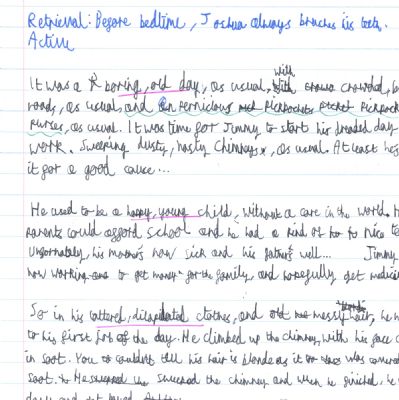 Retrieval: Before bedtime, Joshua always brushes his teeth.
Active
It was a boring, old day, as usual, with crowded, b
roads, as usual, and pernicious
nurses, as usual. It was time for Jimmy to start his dreaded day
work. Sweeping dusty, nasty chimneys, as usual. At least he's
it for a good cause...
He used to be a happy, young child, without a care in the world. H
parents could afford school and he had a kind of to nice
Unfortnately, his mother's now sick and his father's well... Jimmy
now working one to get money for the family, and hopefully get medici
So in his tattered, dilapidated clothes, and messy hair, he
to his first job of the day. He climbed up the chimney, with his face
in soot. You couldn't tell his hair is blonde as it was covered
soot. He sweeped the chimney and when he finished, he